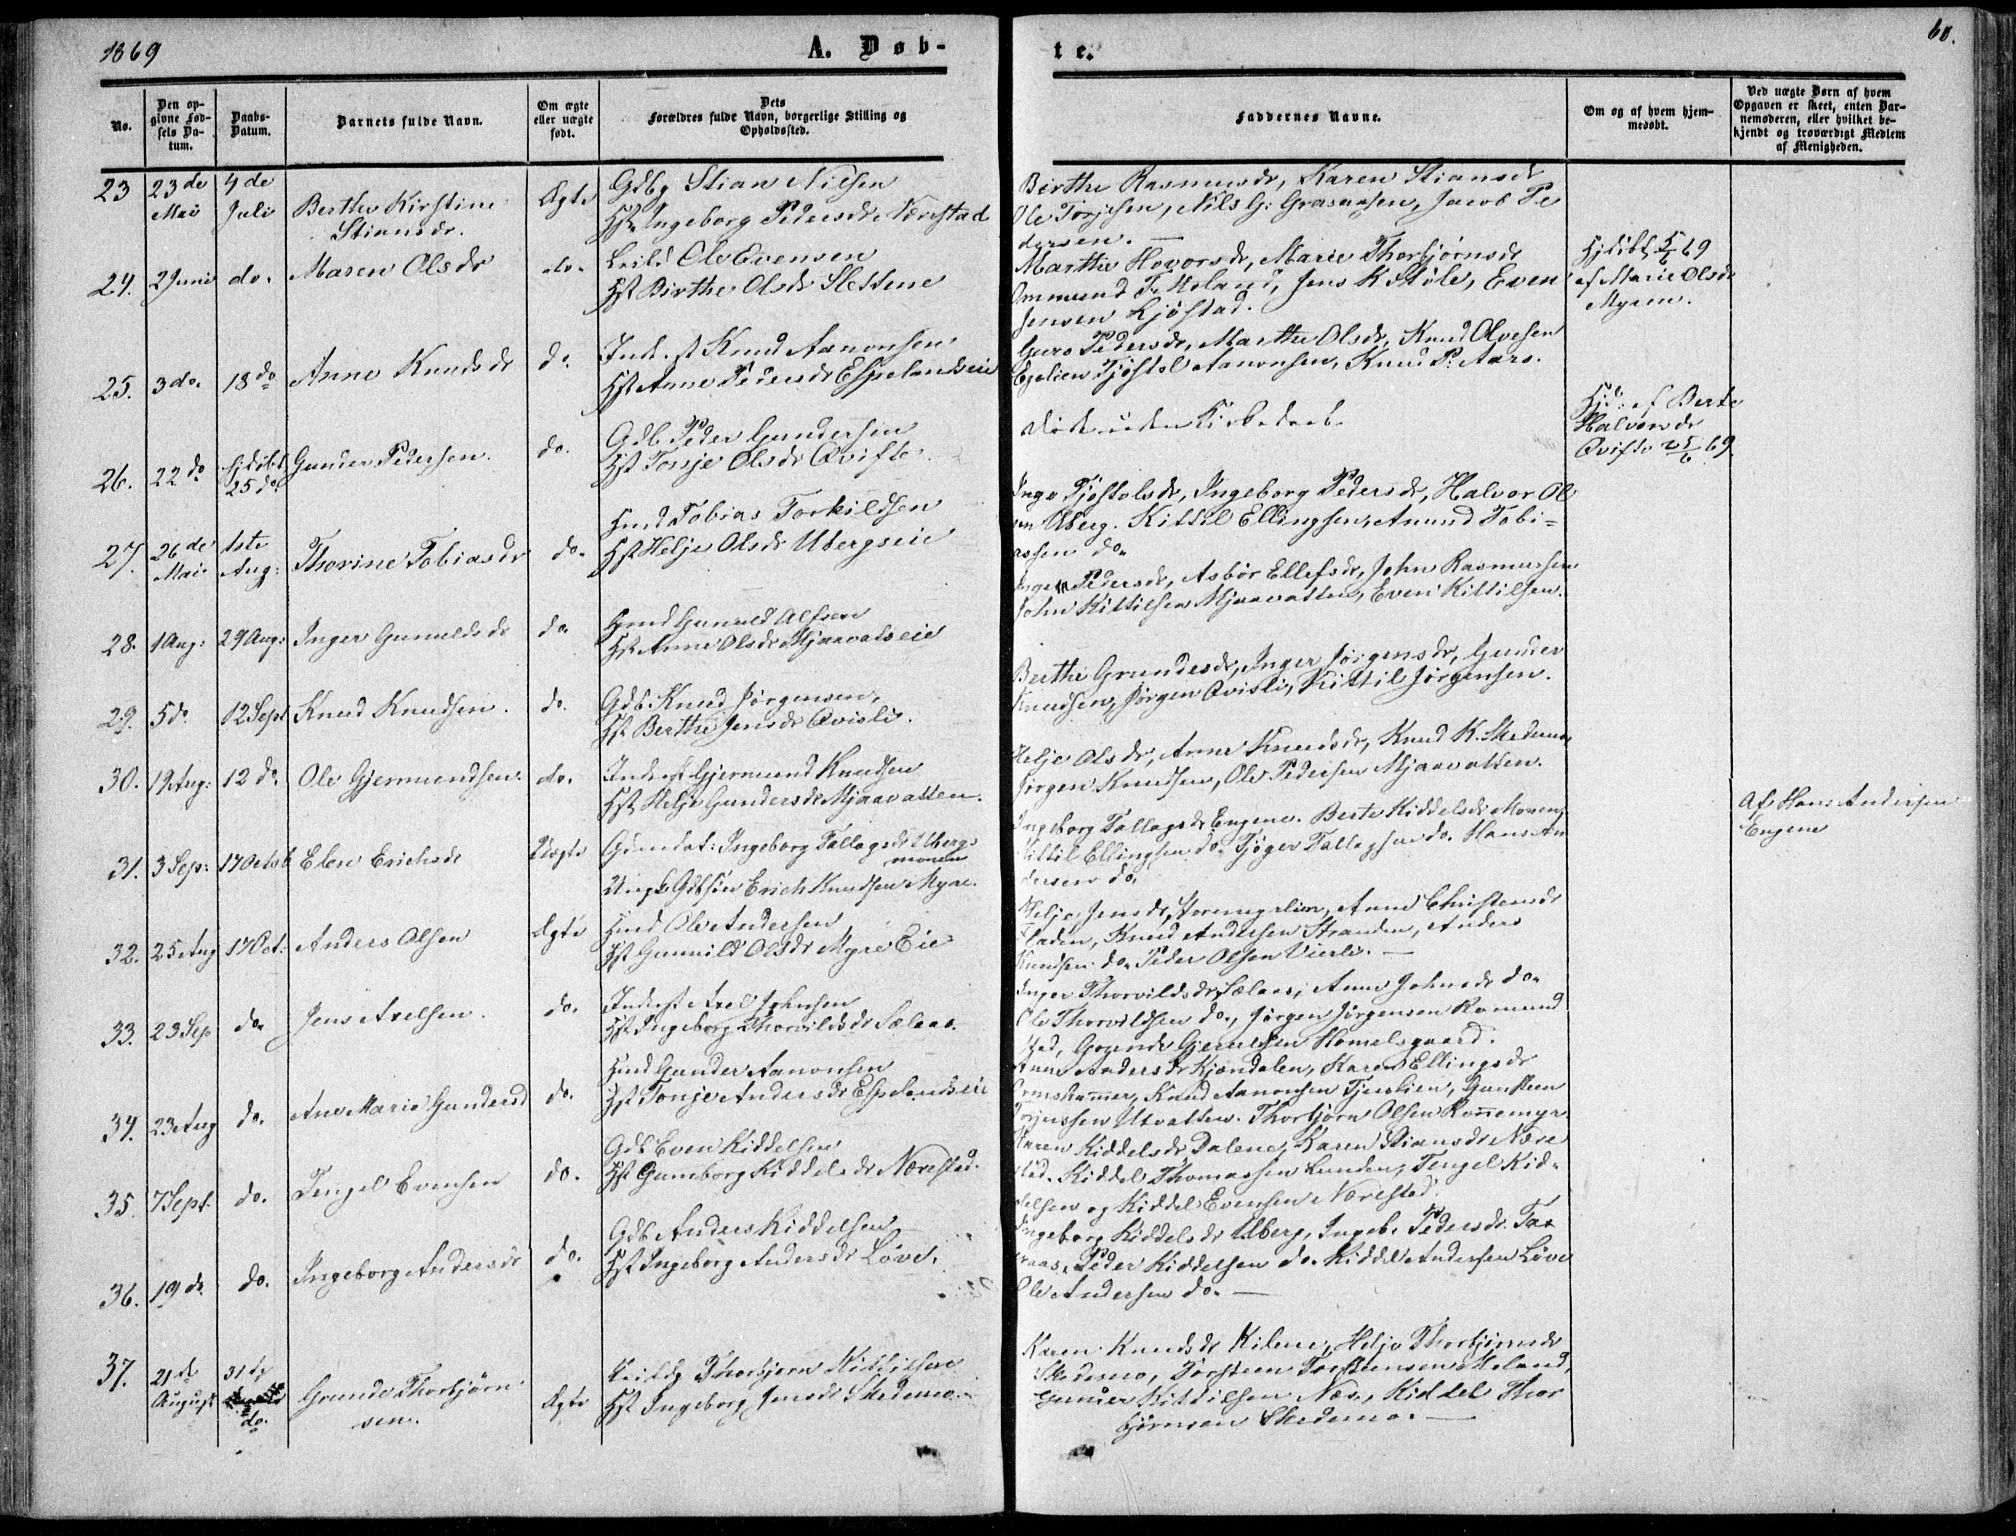 1869
A. Døb-
te.
60.
No.
Den op-
givne Fød-
sels Da-
tum.
Daabs-
Datum.
Barnets fulde Navn.
Om ægte
eller uægte
født.
Dets
Forældres fulde Navn, borgerlige Stilling og
Opholdssted.
Faddernes Navne.
Om og af hvem hjem-
medøbt.
Ved uægte Børn af hvem
Opgaven er skeet, enten Bar-
nemoderen, eller hvilket be-
kjendt og troværdigt Medlem
af Menigheden.
23 23de Mai 4de Juli Berthe Kirstine Stiansdr. Ægte
Gdbg Stian Nilsen
Hst Ingeborg Pedersdr Nærestad
Birthe Rasmusdr, Karen Stiansdr
Ole Torjesen, Nils G: Grasaasen, Jacob Pe
dersen.
24. 2 Juni do. Maren Olsdr do.
Leild Ole Evensen
Hst Birthe Olsdr Slettene
Marthe Hovorsdr, Marie Thorbjørnsdr
Ommund T. Moland, Jens K Støle, Even
Jensen Ljøstad.
Hjdøbt 5/6 69
af Marie Olsdr
Myren.
25. 3 do. 18 do Anne Knudsdr do.
Inderst Knud Aanonsen
Hst Anne Pedersdr Espelandseie
Guro Pedersdr, Marthe Olsdr, Knud Olvesen
Egelien Tjøstel Aanonsen, Knud P. Aars.
26. 22 do Hjdøbt 25 do. Gunder Pedersen. do.
Gdb Peder Gundersen
Hst Tonje Olsdr Qvifte.
død uden Kirkedaab.
Hjd: af Berte
Halvorsdr
Qvifte 25/6 69.
27. 26de Mai 1ste Aug: Thorine Tobiasdr do.
Hmd Tobias Torkildsen
Hst Helje Olsdr Ubergseie
Inge Tjøstolsdr, Ingeborg Pedersdr, Halvor Ol
sen Uberg. Kittil Ellingsen, Anund Tobi=
assen do.
28. 1 Aug: 29 Aug: Inger Gunuldsdr do.
Hmd Gunuld Alfsen
Hst Anne Olsdr Mjaavatseie
Inger Pedersdr, Asbør Ellefsdr, John Rasmussen
John Kittilsen Mjaavatten, Even Kittilsen.
29. 5 do. 12 Sept Knud Knudsen. do.
Gdb Knud Jørgensen,
Hst Berthe Jensdr Qvisli.
Berthe Grundesdr, Inger Jørgensdr, Gunder
Knudsen, Jørgen Qvisli, Kittil Jørgensen.
30. 19 Aug: 12 do. Ole Gjermundsen. do.
Inderst Gjermund Knudsen
Hst Helje Gundersdr Mjaavatten.
Helje Olsdr, Anne Knudsdr, Knud K. Skedemo
Jørgen Knudsen, Ole Pedersen Mjaavatten.
31. 3 Sep: 17 Octob Elen Erichsdr Uægte
Gdmdat: Ingeborg Tallagsdr Ubergs
monen
Ungk Gdbsøn Erich Knudsen Myre.
Ingeborg Tallagsdr Engene. Berte Kiddelsdr Monen,
Kittil Ellingsen do. Tjøger Tallagsen do. Hans An
dersen do.
Af Hans Andersen
Engene
32. 25 Aug 17 Oct: Anders Olsen Ægte
Hmd Ole Andersen
Hst Gunnild Olsdr Myre Eie
Helje Jensdr, Anne Christensdr
Fladen, Knud Andersen Stranden, Anders
Knudsen do. Peder Olsen Vierli.
33. 23 Sep do. Jens Axelsen. do.
Inderst Axel Johnsen
Hst Ingeborg Thorvildsdr Sælaas.
Inger Thorvildsdr Sælaas, Anne Johnsdr do.
Ole Thorvildsen do., Jørgen Jørgensen Romund
stad, Grunde Gjerulfsen Homelsgaard.
34. 23 Aug do. Ane Marie Gundersd do.
Hmd Gunder Aanonsen
Hst Tonje Andersdr Espelandseie
Anne Andersdr Kjøndalen, Karen Ellingsdr
Ormshammer, Knud Aanonsen Tjerslien, Gunsteen
Torjussen Utvatten. Thorbjørn Olsen Rønnemyr.
35. 7 Sept. do. Tengel Evensen do.
Gdb Even Kiddelsen
Hst Gunborg Kiddelsdr Nærestad.
Karen Kiddelsdr Dalene, Karen Stiansdr Nære
stad. Kiddel Thomassen Lunden, Tengel Kid-
delsen og Kiddel Evensen Nærestad.
36. 19 do. do. Ingeborg Andersdr do.
Gdb Anders Kiddelsen
Hst Ingeborg Andersdr Løve.
Ingeborg Kiddelsdr Uberg, Ingeb. Pedersdr Tax
raas, Peder Kiddelsen do. Kiddel Andersen Løve
Ole Andersen do.
37. 21de August 31te do. Grunde Thorbjørn
sen. Ægte
Leildg Thorbjørn Kittilsen
Hst Ingeborg Jensdr Skedemo.
Karen Knudsdr Kilene, Helje Thorbjørnsdr
Skedemo, Torsteen Torsteensen Moland,
Gunder Kittilsen Næs, Kiddel Thor
bjørnsen Skedemo.